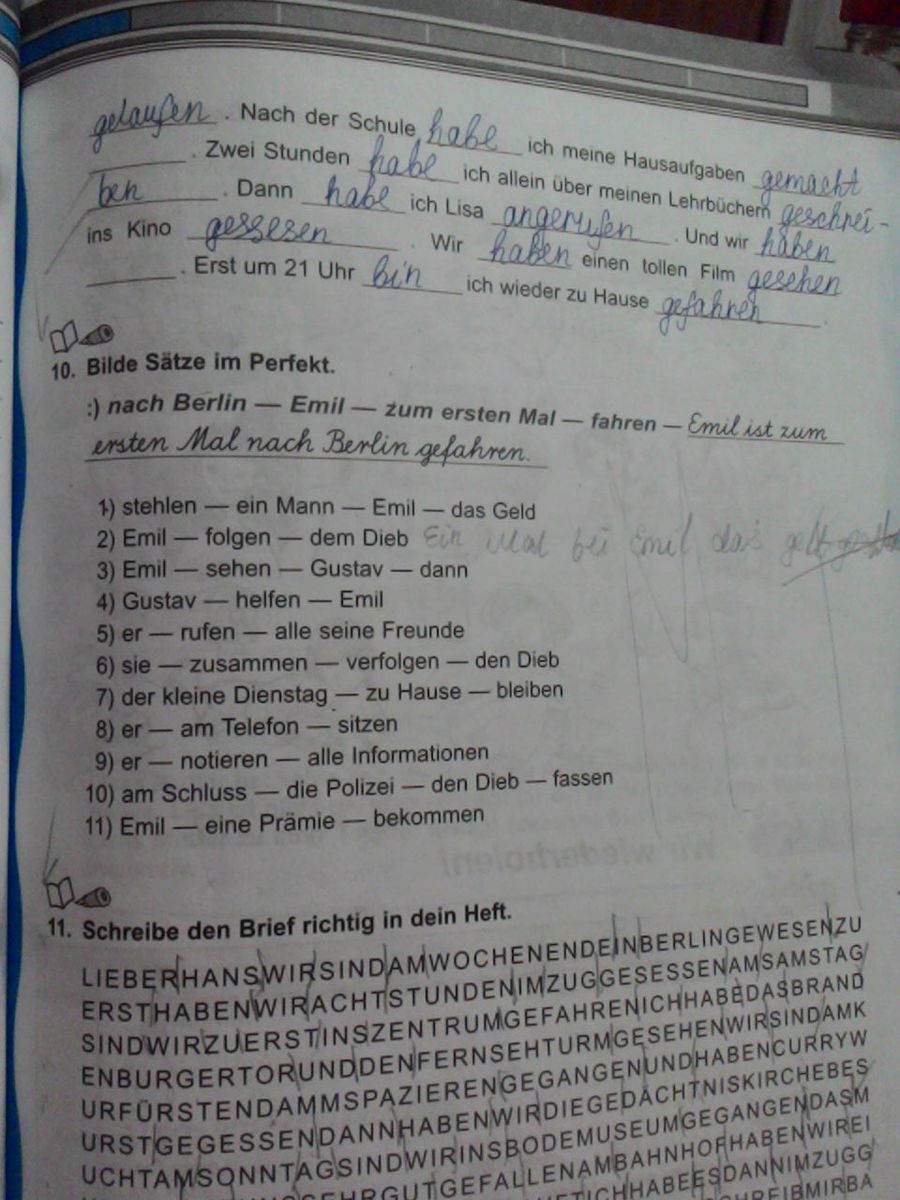 gelaufen . Nach der Schule habe ich meine Hausaufgaben gemacht
. Zwei Stunden habe ich allein über meinen Lehrbüchern geschrei-
ben . Dann habe ich Lisa angerufen . Und wir haben
ins Kino gessesen . Wir haben einen tollen Film gesehen
. Erst um 21 Uhr bin ich wieder zu Hause gefahren .
10. Bilde Sätze im Perfekt.
:) nach Berlin — Emil — zum ersten Mal — fahren — Emil ist zum
ersten Mal nach Berlin gefahren.
1) stehlen — ein Mann — Emil — das Geld
2) Emil — folgen — dem Dieb Ein Mal bei Emil das gelt
3) Emil — sehen — Gustav — dann
4) Gustav — helfen — Emil
5) er — rufen — alle seine Freunde
6) sie — zusammen — verfolgen — den Dieb
7) der kleine Dienstag — zu Hause — bleiben
8) er — am Telefon — sitzen
9) er — notieren — alle Informationen
10) am Schluss — die Polizei — den Dieb — fassen
11) Emil — eine Prämie — bekommen
11. Schreibe den Brief richtig in dein Heft.
LIEBERHANSWIRSINDAMWOCHENENDEINBERLINGEWESENZU
ERSTHABENWIRACHTSTUNDENIMZUGGESESSENAMSAMSTAG
SINDWIRZUERSTINSZENTRUMGEFAHRENICHHABEDASBRAND
ENBURGERTORUNDDENFERNSEHTURMGESEHENWIRSINDAMK
URFÜRSTENDAMMSPAZIERENGEGANGENUNDHABENCURRYW
URSTGEGESSENDANNHABENWIRDIEGEDÄCHTNISKIRCHEBES
UCHTAMSONNTAGSINDWIRINSBODEMUSEUMGEGANGENDASM
SEHRGUTGEFALLENAMBAHNHOFHABENWIREI
ICHHABEESDANNIMZUGG